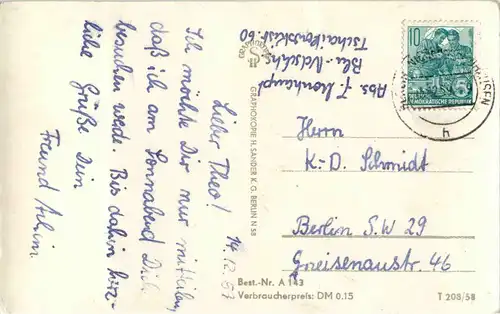 14.12.57
Lieber Theo!
Ich möchte Dir nur mitteilen,
daß ich am Sonnabend Dich
besuchen werde. Bis dahin herz-
liche Grüße Dein
Freund Achim
Abs. J. Monhaupt
Bln.-
Tschaikowskistr. 60
GRAPHOKOPIE H. SANDER K. G. BERLIN N 58
10
DEUTSCHE DEMOKRATISCHE REPUBLIK
h
Herrn
K.-D. Schmidt
Berlin S.W 29
Gneisenaustr. 46
Best.-Nr. A 143
Verbraucherpreis: DM 0.15
T 208/58